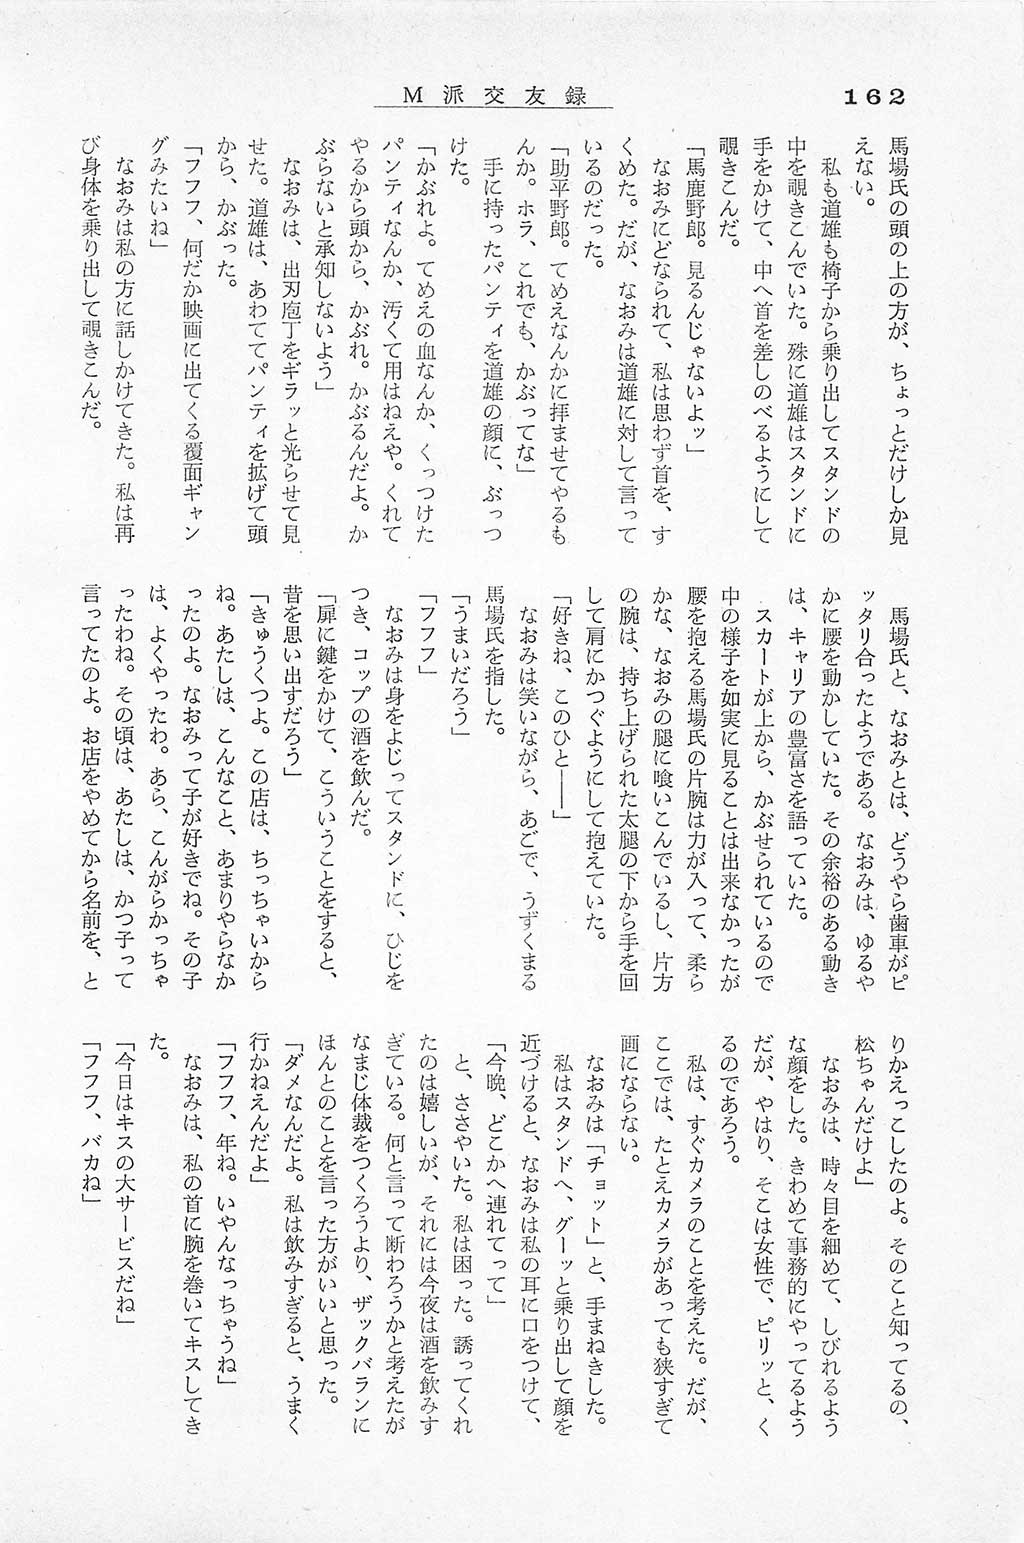 162
M派交友録
馬場氏の頭の上の方が、ちょっとだけしか見
えない。
私も道雄も椅子から乗り出してスタンドの
中を覗きこんでいた。殊に道雄はスタンドに
手をかけて、中へ首を差しのべるようにして
覗きこんだ。
「馬鹿野郎。見るんじゃないよッ」
なおみにどなられて、私は思わず首を、す
くめた。だが、なおみは道雄に対して言って
いるのだった。
「助平野郎。てめえなんかに拝ませてやるも
んか。ホラ、これでも、かぶってな」
手に持ったパンティを道雄の顔に、ぶっつ
けた。
「かぶれよ。てめえの血なんか、くっつけた
パンティなんか、汚くて用はねえや。くれて
やるから頭から、かぶれ。かぶるんだよ。か
ぶらないと承知しないよう」
なおみは、出刃庖丁をギラッと光らせて見
せた。道雄は、あわててパンティを拡げて頭
から、かぶった。
「フフフ、何だか映画に出てくる覆面ギャン
グみたいね」
なおみは私の方に話しかけてきた。私は再
び身体を乗り出して覗きこんだ。
馬場氏と、なおみとは、どうやら歯車がピ
ッタリ合ったようである。なおみは、ゆるや
かに腰を動かしていた。その余裕のある動き
は、キャリアの豊富さを語っていた。
スカートが上から、かぶせられているので
中の様子を如実に見ることは出来なかったが
腰を抱える馬場氏の片腕は力が入って、柔ら
かな、なおみの腿に喰いこんでいるし、片方
の腕は、持ち上げられた太腿の下から手を回
して肩にかつぐようにして抱えていた。
「好きね、このひと――」
なおみは笑いながら、あごで、うずくまる
馬場氏を指した。
「うまいだろう」
「フフフ」
なおみは身をよじってスタンドに、ひじを
つき、コップの酒を飲んだ。
「扉に鍵をかけて、こういうことをすると、
昔を思い出すだろう」
「きゅうくつよ。この店は、ちっちゃいから
ね。あたしは、こんなこと、あまりやらなか
ったのよ。なおみって子が好きでね。その子
は、よくやったわ。あら、こんがらかっちゃ
ったわね。その頃は、あたしは、かつ子って
言ってたのよ。お店をやめてから名前を、と
りかえっこしたのよ。そのこと知ってるの、
松ちゃんだけよ」
なおみは、時々目を細めて、しびれるよう
な顔をした。きわめて事務的にやってるよう
だが、やはり、そこは女性で、ピリッと、く
るのであろう。
私は、すぐカメラのことを考えた。だが、
ここでは、たとえカメラがあっても狭すぎて
画にならない。
なおみは「チョット」と、手まねきした。
私はスタンドへ、グーッと乗り出して顔を
近づけると、なおみは私の耳に口をつけて、
「今晩、どこかへ連れてって」
と、ささやいた。私は困った。誘ってくれ
たのは嬉しいが、それには今夜は酒を飲みす
ぎている。何と言って断わろうかと考えたが
なまじ体裁をつくろうより、ザックバランに
ほんとのことを言った方がいいと思った。
「ダメなんだよ。私は飲みすぎると、うまく
行かねえんだよ」
「フフフ、年ね。いやんなっちゃうね」
なおみは、私の首に腕を巻いてキスしてき
た。
「今日はキスの大サービスだね」
「フフフ、バカね」